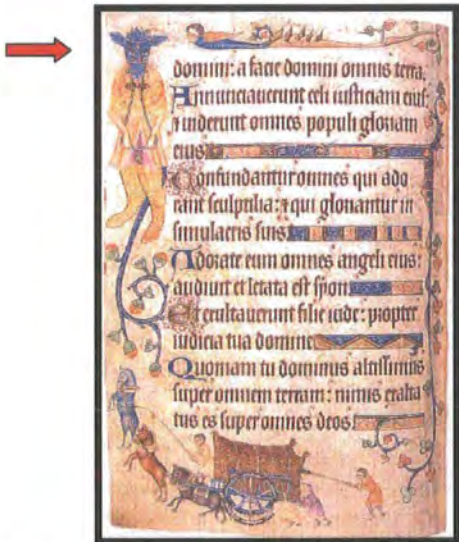 domini: a facie domini omnis terra.
Annunciauerunt celi iusticiam eius:
⁊ uiderunt omnes populi gloriam
eius
Confundantur omnes qui ado
rant sculptilia: ⁊ qui gloriantur in
simulacris suis
Adorate eum omnes angeli eius:
audiuit et letata est syon
Et exultauerunt filie iude: propter
iudicia tua domine
Quoniam tu dominus altissimus
super omnem terram: nimis exalta
tus es super omnes deos